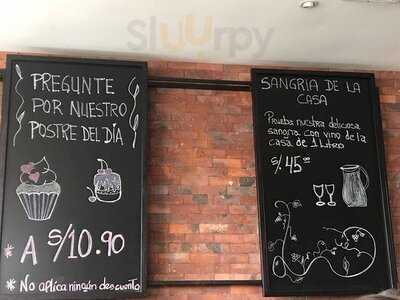 Sluurpy
PREGUNTE
POR NUESTRO
POSTRE DEL DÍA
* A S/10.90
* No Aplica ningún descuento
SANGRIA DE LA
CASA
Prueba nuestra deliciosa
sangria con vino de la
casa de 1 Litro
S/. 45.00